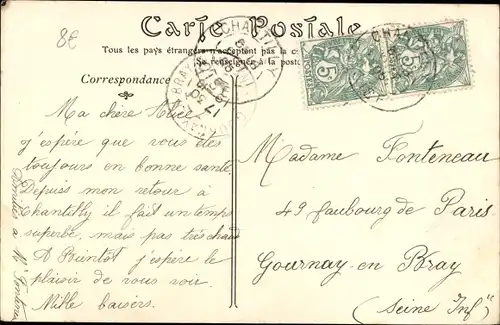 8€
Carte Postale
Tous les pays étrangers n'acceptent pas la c
Se renseigner à la poste
Correspondance
CHANTILLY
CHANTILLY
5
5
GOURNAY
BRAY
17
Ma chère Alice
J'espère que vous êtes
toujours en bonne santé
Depuis mon retour à
Chantilly il fait un temps
superbe, mais pas très chaud
A Bientôt j'espère le
plaisir de vous voir.
Mille baisers.
Madame Fonteneau
49 faubourg de Paris
Gournay-en Bray
(Seine Infre)